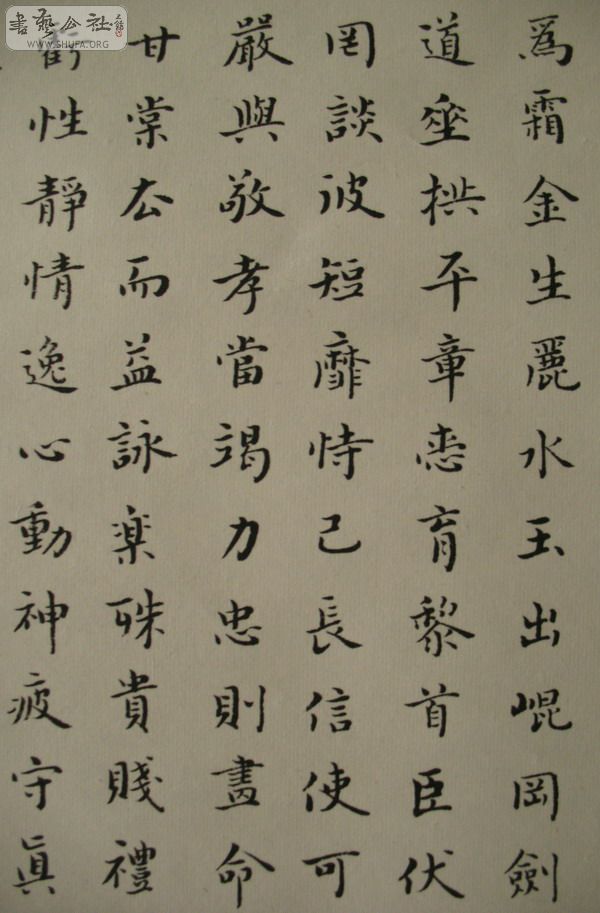 書藝公社
WWW.SHUFA.ORG
爲霜金生麗水玉出崐岡劍
道坐拱平章愛育黎首臣伏
罔談彼短靡恃己長信使可
嚴與敬孝當竭力忠則盡命
甘棠去而益詠楽殊貴賤禮
虧性靜情逸心動神疲守眞